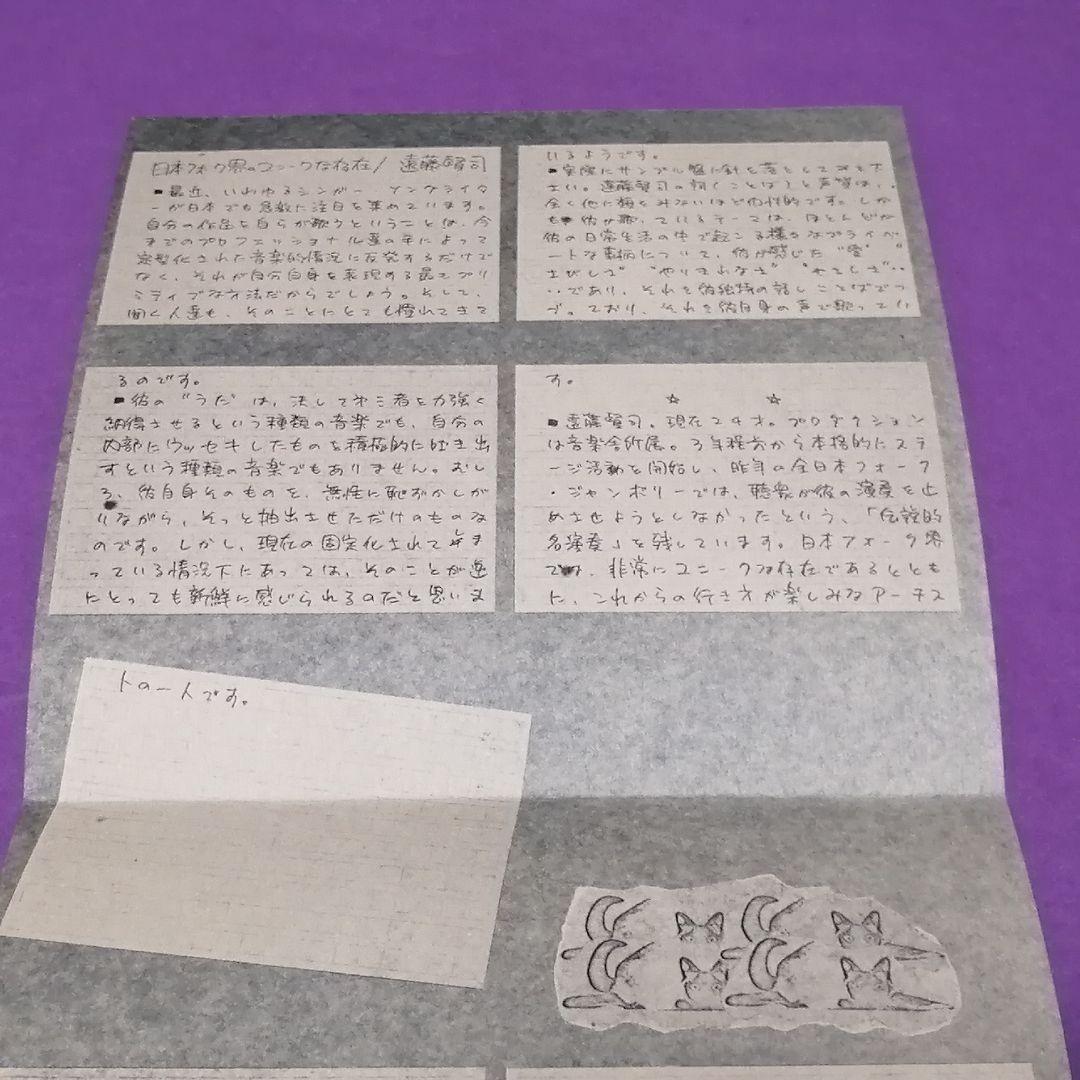 日本フォーク界のユニークな存在/ 遠藤賢司
■最近、いわゆるシンガー ソングライタ
ーが日本でも急激に注目を集めています。
自分の作品を自らが歌うということは、今
までのプロフェッショナル達の手によって
定型化された音楽的情況に反発するだけで
なく、それが自分自身を表現する最もプリ
ミティブな方法だからでしょう。そして、
聞く人達も、そのことにとても憧れてきて
いるようです。
■実際にサンプル盤に針を落としてみて下
さい。遠藤賢司の詞(ことば)と声質は、
全く他に類をみないほど個性的です。しか
も 彼が歌っているテーマは、ほとんどが
彼の日常生活の中で起こる様々なプライベ
ートな事柄について、彼が感じた“愛”“
さびしさ”“やりきれなさ”
‥であり、それを彼独特の話しことばでつ
づっており、それを彼自身の声で歌ってい
るのです。
■彼の“うた”は、決して第三者を力強く
納得させるという種類の音楽でも、自分の
内部にウッセキしたものを積極的に吐き出
すという種類の音楽でもありません。むし
ろ、彼自身そのものを、無性に恥ずかしが
りながら、そっと抽出させただけのものな
のです。しかし、現在の固定化されてしま
っている情況下にあっては、そのことが逆
にとっても新鮮に感じられるのだと思いま
す。
☆ ☆
■遠藤賢司。現在24才。プロダクション
は音楽舎所属。3年程前から本格的にステ
ージ活動を開始し、昨年の全日本フォーク
・ジャンボリーでは、聴衆が彼の演奏を止
めさせようとしなかったという、「伝説的
名演奏」を残しています。日本フォーク界
では、非常にユニークな存在であるととも
に、これからの行き方が楽しみなアーチス
トの一人です。